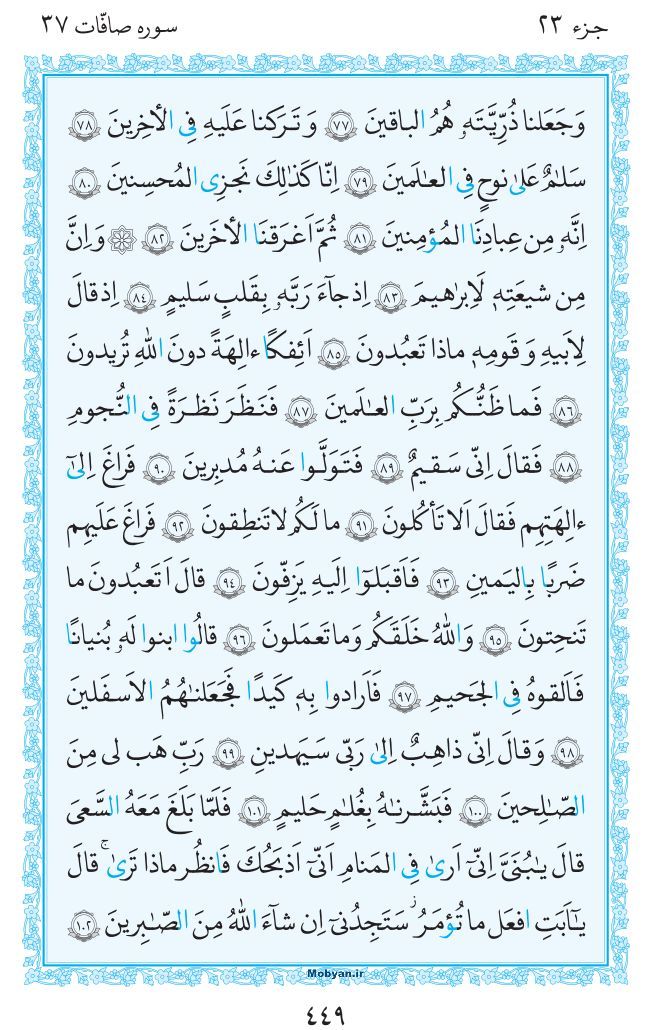 جزء ۲۳
سوره صافّات ۳۷
وَ جَعَلنا ذُرِّيَّتَه‍ُۥ هُمُ الباقينَ ﴿۷۷﴾ وَ تَرَكنا عَلَيهِ فِى الأخِرينَ ﴿۷۸﴾
سَلٰمٌ عَلىٰ نوحٍ فِى العٰلَمينَ ﴿۷۹﴾ اِنّا كَذٰلِكَ نَجزِى المُحسِنينَ ﴿۸۰﴾
اِنَّه‍ُۥ مِن عِبادِنَا المُؤمِنينَ ﴿۸۱﴾ ثُمَّ اَغرَقنَا الأخَرينَ ﴿۸۲﴾ ۞ وَ اِنَّ
مِن شيعَتِه‍ِۦ لَاِبرٰهيمَ ﴿۸۳﴾ اِذ جآءَ رَبَّه‍ُۥ بِقَلبٍ سَليمٍ ﴿۸۴﴾ اِذ قالَ
لِاَبيهِ وَ قَومِه‍ِۦ ماذا تَعبُدونَ ﴿۸۵﴾ اَئِفكًا ءالِهَةً دونَ اللهِ تُريدونَ
﴿۸۶﴾ فَما ظَنُّكُم بِرَبِّ العٰلَمينَ ﴿۸۷﴾ فَنَظَرَ نَظرَةً فِى النُّجومِ
﴿۸۸﴾ فَقالَ اِنّى سَقيمٌ ﴿۸۹﴾ فَتَوَلَّوا عَنهُ مُدبِرينَ ﴿۹۰﴾ فَراغَ اِلىٰٓ
ءالِهَتِهِم فَقالَ اَلا تَأكُلونَ ﴿۹۱﴾ ما لَكُم لا تَنطِقونَ ﴿۹۲﴾ فَراغَ عَلَيهِم
ضَربًا بِاليَمينِ ﴿۹۳﴾ فَاَقبَلوٓا اِلَيهِ يَزِفّونَ ﴿۹۴﴾ قالَ اَتَعبُدونَ ما
تَنحِتونَ ﴿۹۵﴾ وَ اللهُ خَلَقَكُم وَ ما تَعمَلونَ ﴿۹۶﴾ قالُوا ابنوا لَه‍ُۥ بُنيانًا
فَاَلقوهُ فِى الجَحيمِ ﴿۹۷﴾ فَاَرادوا بِه‍ِۦ كَيدًا فَجَعَلنٰهُمُ الاَسفَلينَ
﴿۹۸﴾ وَ قالَ اِنّى ذاهِبٌ اِلىٰ رَبّى سَيَهدينِ ﴿۹۹﴾ رَبِّ هَب لى مِنَ
الصّٰلِحينَ ﴿۱۰۰﴾ فَبَشَّرنٰهُ بِغُلٰمٍ حَليمٍ ﴿۱۰۱﴾ فَلَمّا بَلَغَ مَعَهُ السَّعىَ
قالَ يٰبُنَىَّ اِنّىٓ اَرىٰ فِى المَنامِ اَنّىٓ اَذبَحُكَ فَانظُر ماذا تَرىٰۚ قالَ
يٰٓاَبَتِ افعَل ما تُؤمَرُۖ سَتَجِدُنىٓ اِن شآءَ اللهُ مِنَ الصّٰبِرينَ ﴿۱۰۲﴾
Mobyan.ir
۴۴۹